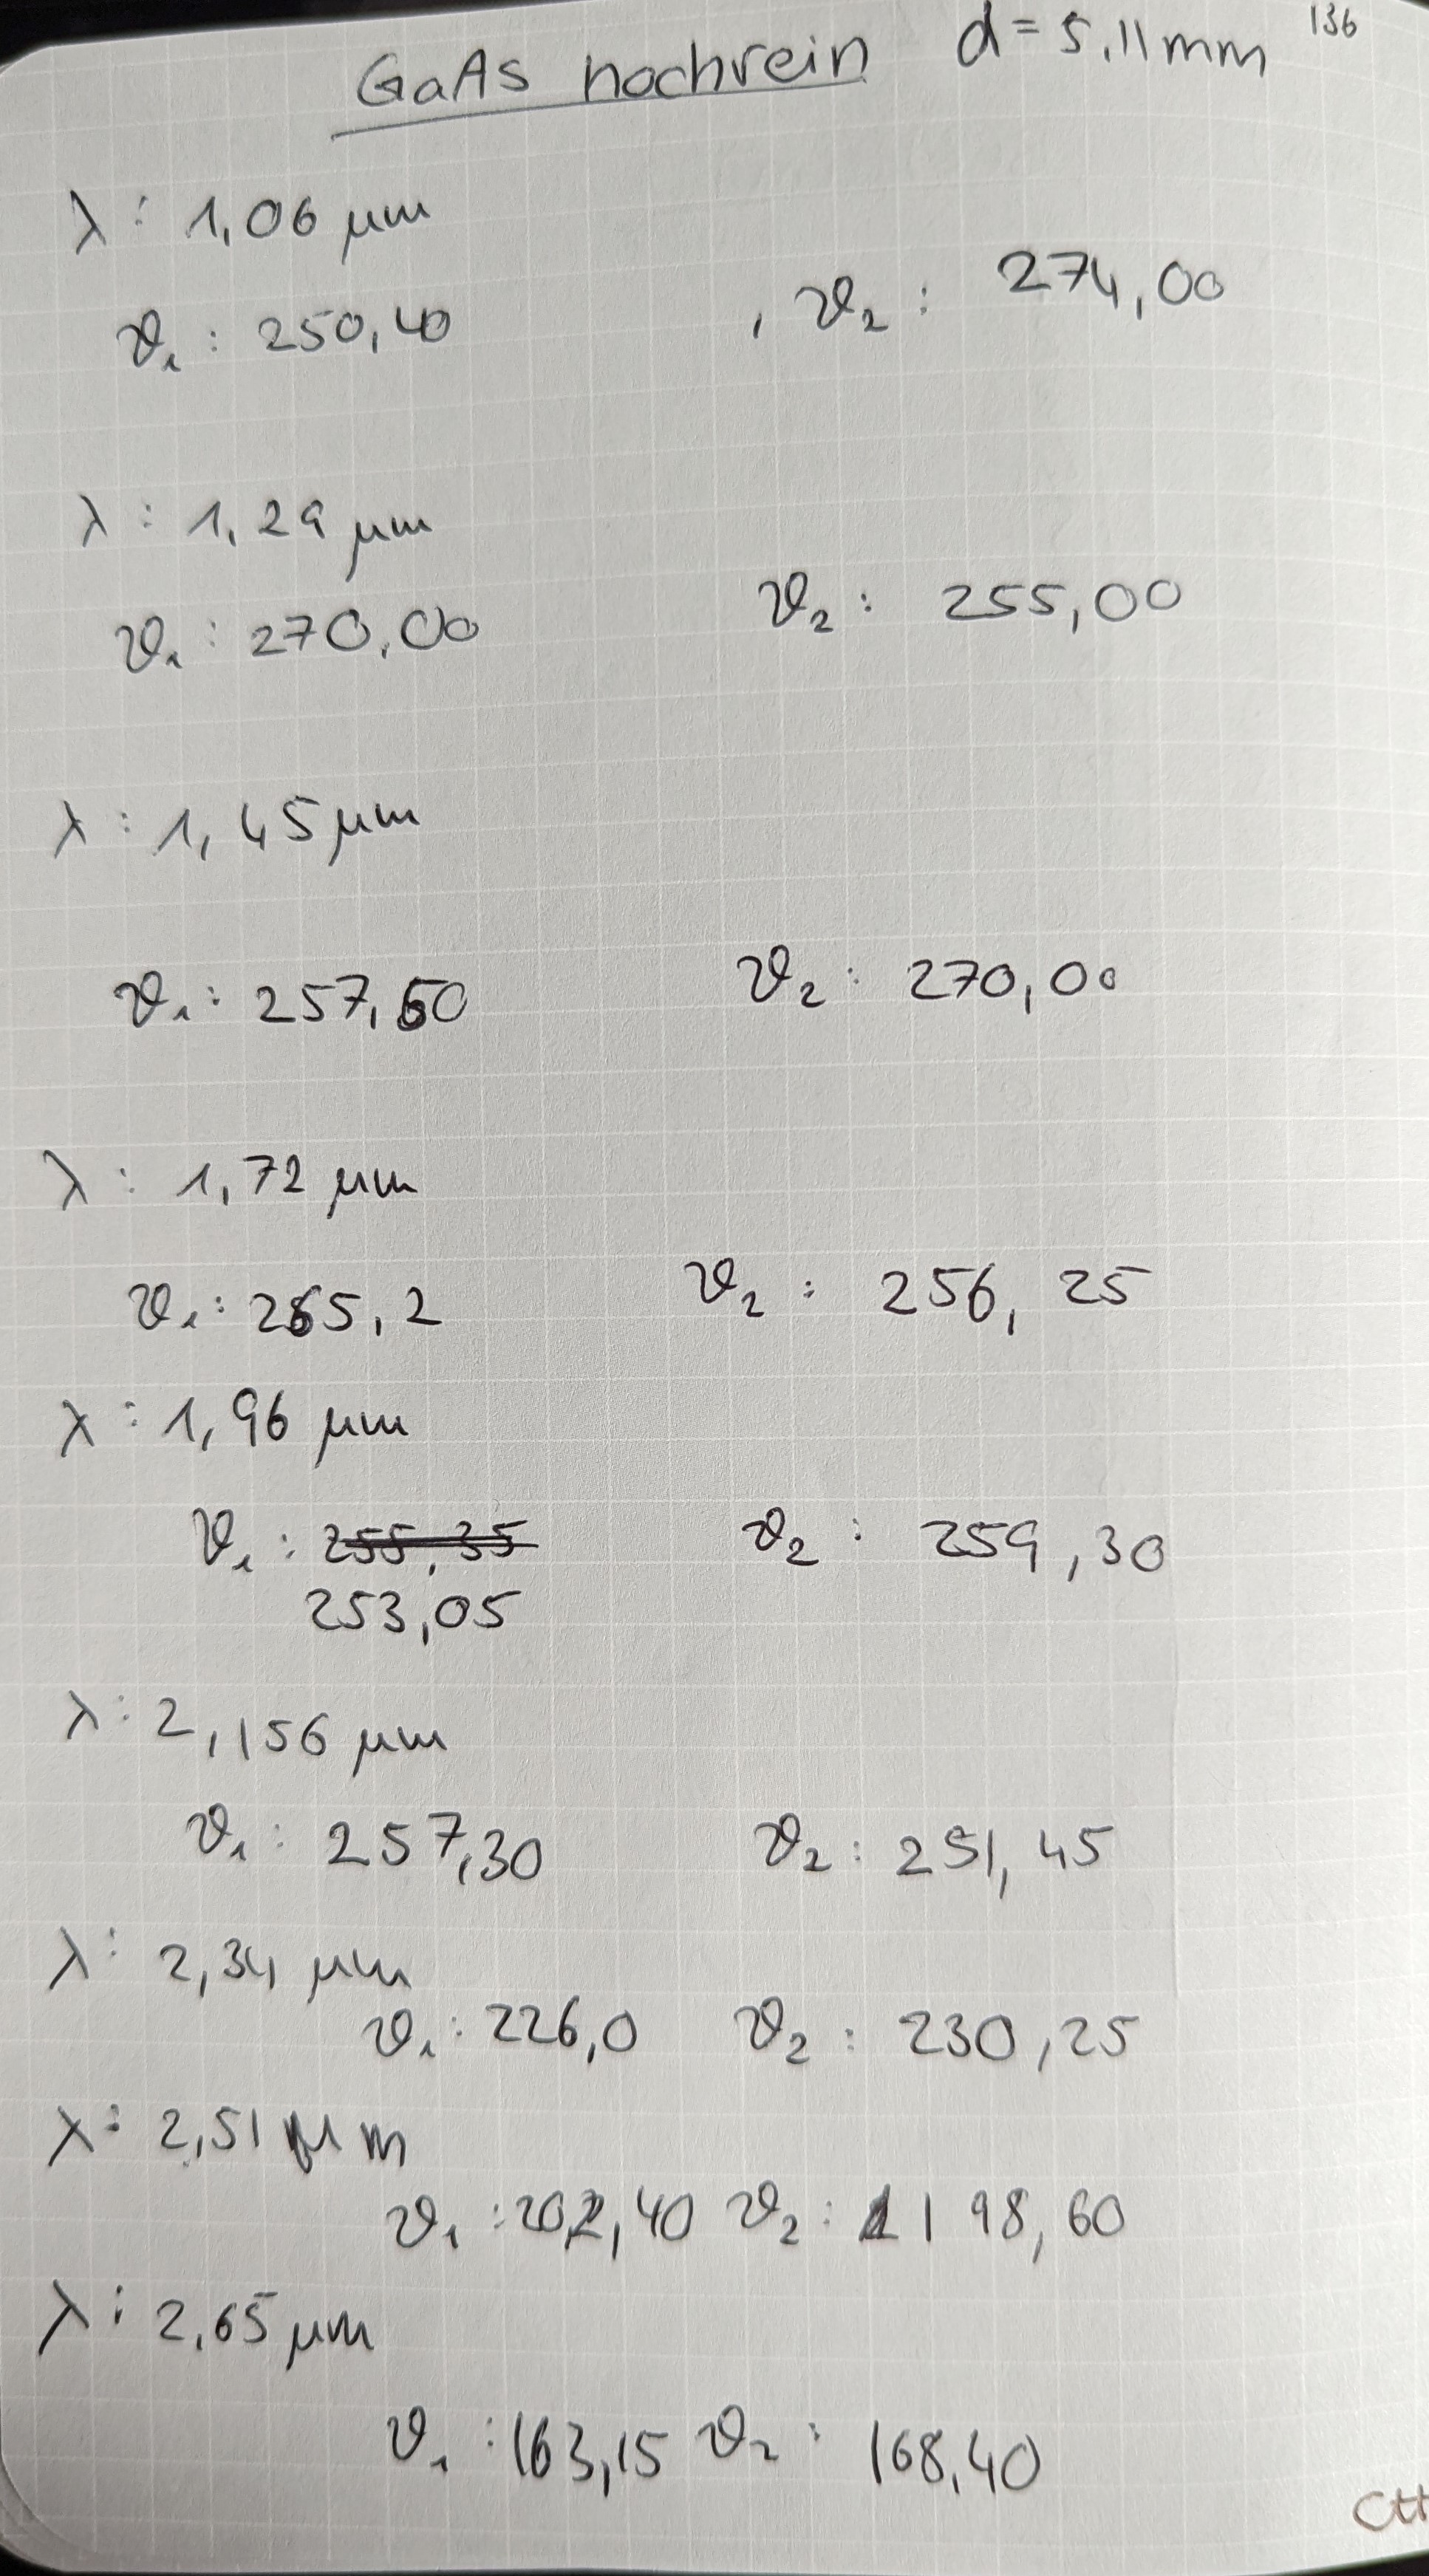 GaAs hochrein d = 5,11mm 136
λ : 1,06 μm
ϑ₁ : 250,40 , ϑ₂ : 274,00
λ : 1,29 μm
ϑ₁ : 270,00 ϑ₂ : 255,00
λ : 1,45 μm
ϑ₁ : 257,50 ϑ₂ : 270,00
λ : 1,72 μm
ϑ₁ : 265,2 ϑ₂ : 256,25
λ : 1,96 μm
ϑ₁ : 255,35 ϑ₂ : 259,30
253,05
λ : 2,156 μm
ϑ₁ : 257,30 ϑ₂ : 251,45
λ : 2,34 μm
ϑ₁ : 226,0 ϑ₂ : 230,25
λ : 2,51 μm
ϑ₁ : 202,40 ϑ₂ : 198,60
λ : 2,65 μm
ϑ₁ : 163,15 ϑ₂ : 168,40